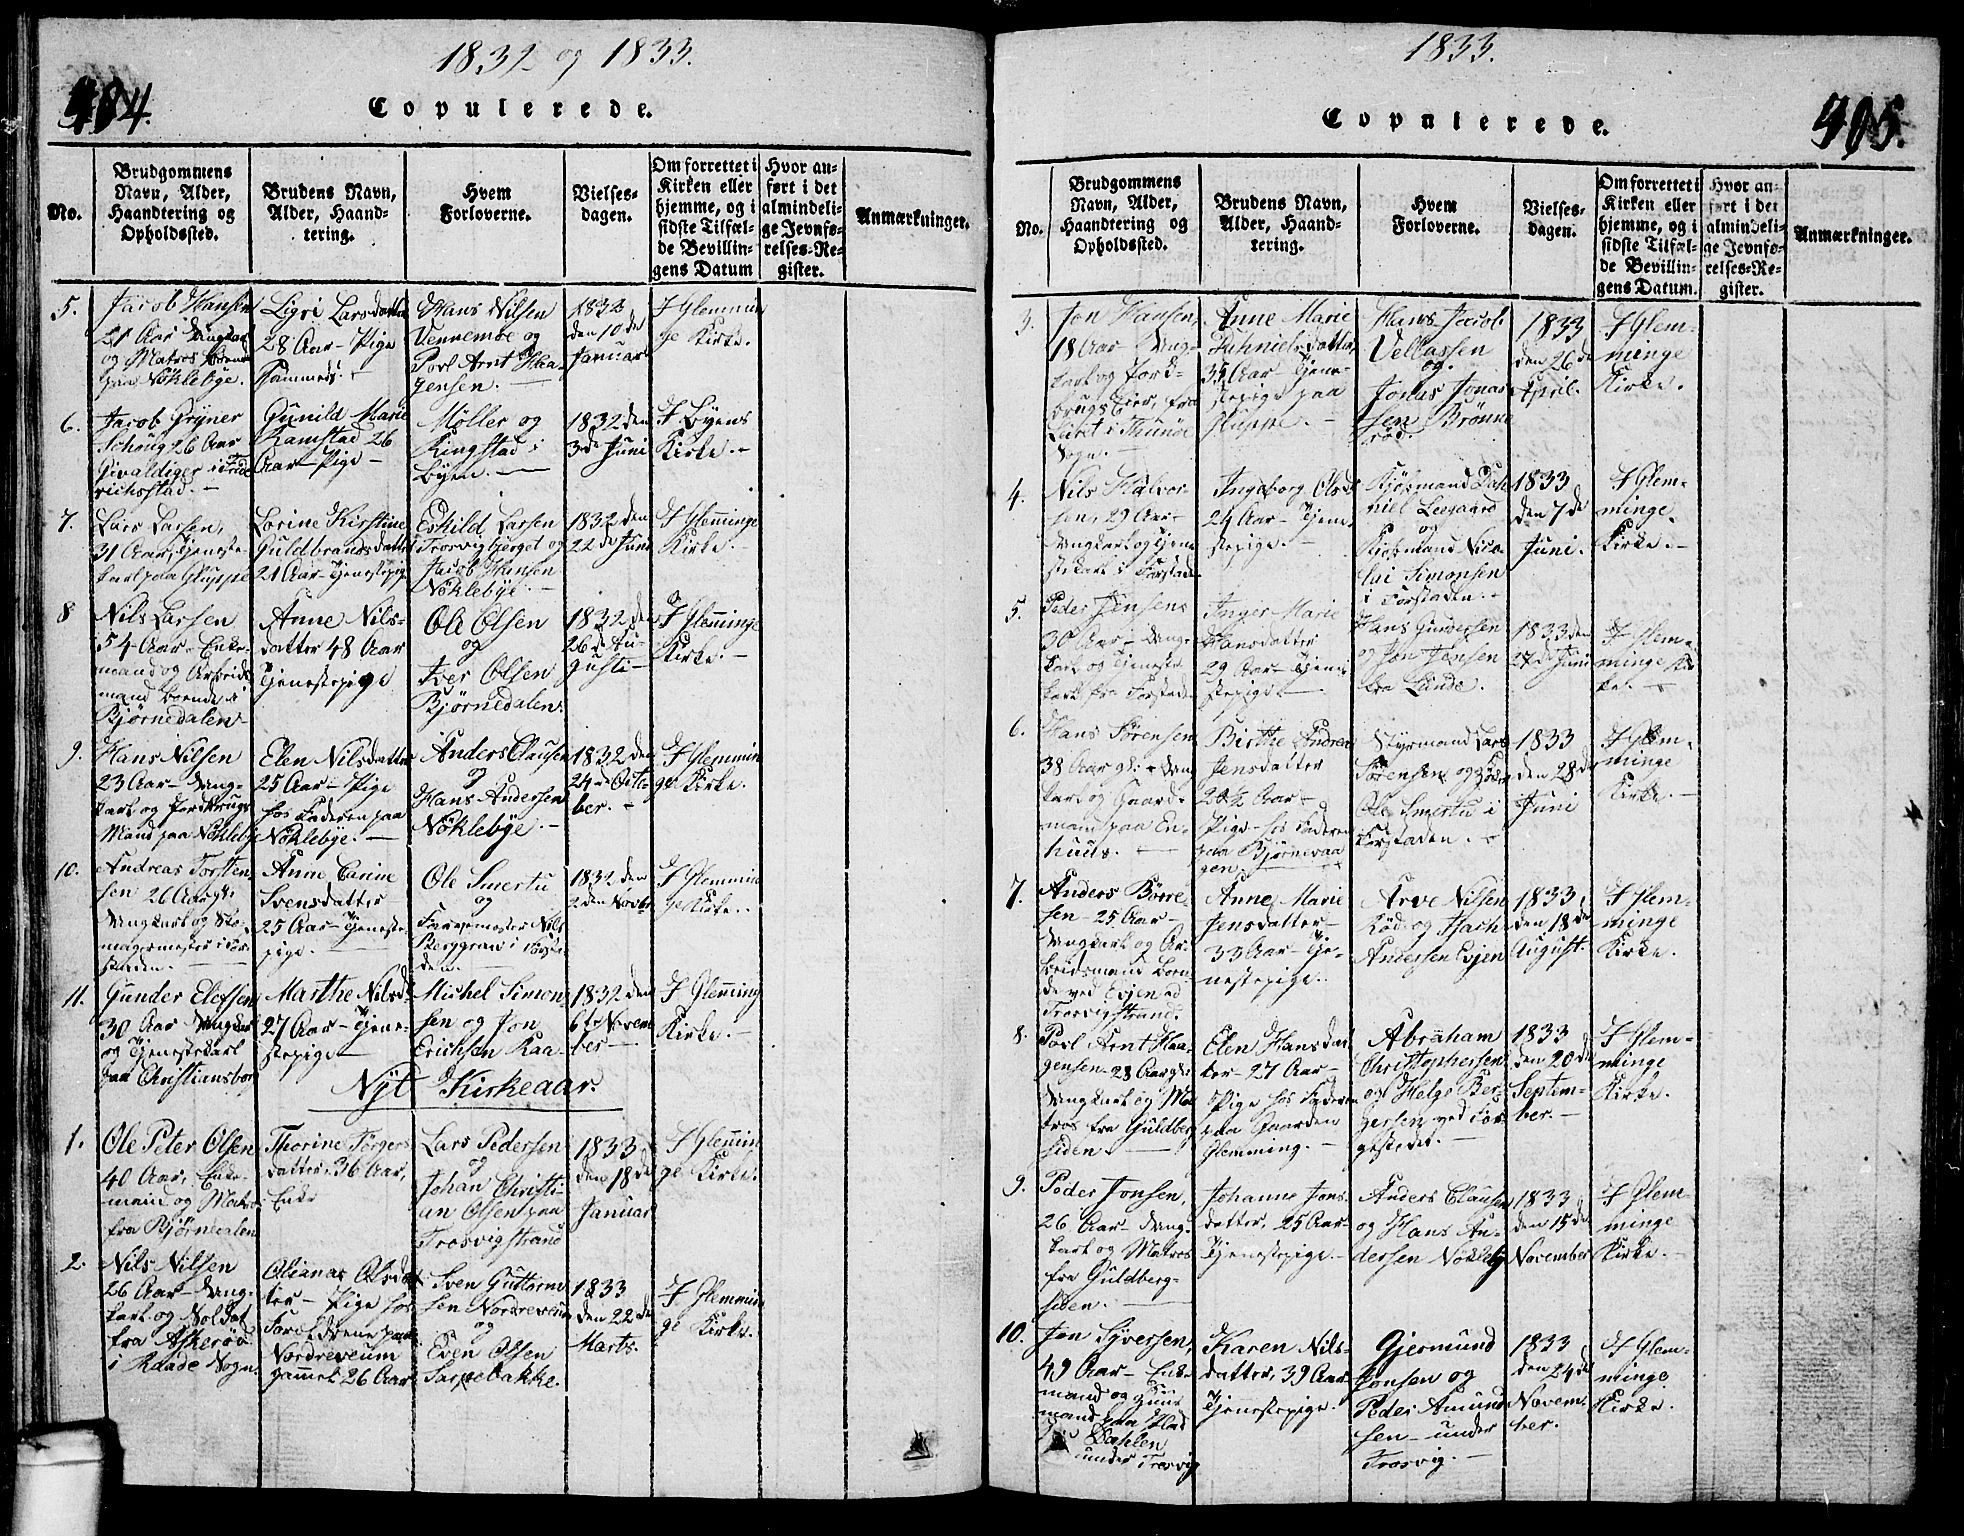 1832 og 1833.
404.
Copulerede.
No.
Brudgommens
Navn, Alder,
Haandtering og
Opholdssted.
Brudens Navn,
Alder, Haand-
tering.
Hvem
Forloverne.
Vielses-
dagen.
Om forrettet i
Kirken eller
hjemme, og i
sidste Tilfæl-
de Bevillin-
gens Datum
Hvor an-
ført i det
almindeli-
ge Jevnfø-
relses-Re-
gister.
Anmærkninger.
5.
Jacob Hansen
21 Aar Ungkarl
og Matros
paa Nöklebye.
Sigri Larsdatter
28 Aar - Pige
Hans Nilsen
Vennemoe og
Povl Arnt Haa-
gensen.
1832
den 10de
Januar
I Glemmin
ge Kirke.
6.
Jacob Gryner
Schoug 26 Aar
Givaldiger i Fred
richsstad.
Gunild Marie
Ramstad 26
Aar - Pige
Møller og
Ringstad i
Byen.
1832 den
3de Juni
I Byens
Kirke.
7.
Lars Larsen,
31 Aar, Tjeneste-
karl paa Gluppe
Lorine Kirstine
Guldbransdatter
21 Aar - Tjenestepige
Eskild Larsen
Trosvigbjerget og
Jacob Hansen
Nöklebye.
1832 den
22de Juni
I Glemminge
Kirke.
8
Nils Larsen
54 Aar - Enke-
mand og Arbeids
mand boende i
Bjørnedalen
Anne Nils-
datter 48 Aar
Tjenestepige
Ole Olsen
og
Iver Olsen
Bjørnedalen.
1832 de
26de Au-
gusti
I Glemminge
Kirke.
9.
Hans Nilsen
23 Aar - Ung-
karl og Jordbrugs
Mand paa Nöklebye
Elen Nilsdatter
25 Aar - Pige
hos Faderen paa
Nöklebye.
Anders Clausen
og
Hans Andersen
Nöklebye.
1832 den
24de Octo-
ber.
I Glemmin
ge Kirke.
10.
Andreas Torsten
sen 26 Aar gl.
Ungkarl og Sko-
magermester i For-
staden.
Anne Carine
Svensdatter
25 Aar - Tjeneste-
pige.
Ole Smertu
og
Farvemester Nils
Berggren i Forsta
den.
1832 den
2den Novbr
I Glemmin
ge Kirke.
11.
Gunder Elefsen
30 Aar - Ungkarl
og Tjenestekarl
paa Christiansborg
Marthe Nilsd.
27 Aar - Tjene-
stepige
Michel Simon-
sen og Jon
Erichsen Raa-
1832 den
6te Novem
ber
I Glemming
Kirke.
Nyt Kirkeaar.
1.
Ole Peter Olsen
40 Aar, Enke-
mand og Matros
fra Bjørnedalen
Thorine Törgers
datter, 36 Aar,
Enke
Lars Pedersen
og
Johan Christi-
an Olsen paa
Trosvigstrand
1833
den 18de
Januar
I Glemmin
ge Kirke.
2.
Nils Nilsen
26 Aar - Ung-
karl og Soldat
fra Askeröd
i Raade Sogn.
Oliana Olsdat
ter - Pige hos
Forældrene paa
Nordreveum
gammel 26 Aar
Sven Guttorm
sen Nordreveum
og
Even Olsen
Sarpebakke.
1833
den 22de
Marts.
I Glemmin
ge Kirke.
1833.
405.
Copulerede.
No.
Brudgommens
Navn, Alder,
Haandtering og
Opholdssted.
Brudens Navn,
Alder, Haand-
tering.
Hvem
Forloverne.
Vielses-
dagen.
Om forrettet i
Kirken eller
hjemme, og i
sidste Tilfæl-
de Bevillin-
gens Datum.
Hvor an-
ført i det
almindeli-
ge Jevnfø-
relses-Re-
gister.
Anmærkninger.
3.
Jon Hansen,
18 Aar - Ung-
karl og Jord-
brugs Eier, fra
i Thunöe
Sogn.
Anne Marie
35 Aar - Tjene-
stepige paa
Gluppe.
Hans Jacob
Vellassen
og
Jonas Jonas
sen Brønne
rød.
1833
den 26de
April.
I Glem-
minge
Kirke.
4.
Nils Halvor-
sen, 29 Aar
Ungkarl og Tjene
stekarl i Forstade
Ingeborg Olsd.
24 Aar - Tjene-
stepige.
Kjøbmand Dah
niel Leegaard
og
Kjøbmand Nico-
lai Simonsen
i Forstaden.
1833
den 7de
Juni.
I Glem-
minge
Kirke.
5.
Peder Jensens
30 Aar - Ung-
karl og Tjeneste
karl fra Forstade
Inger Marie
Hansdatter
29 Aar - Tjene
stepige.
Hans Gundersen
og Jon Jensen
fra Lunde.
1833 den
27de Juni
I Glem-
minge Kir
ke.
6.
Hans Sörensen
38 Aar gl. - Ung
karl og Gaard-
mand paa En-
huus.
Birthe Andrea
Jensdatter
20½ Aar -
Pige hos Faderen
paa Bjørnevaa
gen.
Styrmand Lars
Sörensen og
Ole Smertu i
Forstaden.
1833
den 28de
Juni
I Glem-
minge
Kirke.
7.
Anders Börre-
sen - 25 Aar -
Ungkarl og Ar-
beidsmand boen-
de ved Evjen ved
Trosvigstrand.
Anne Marie
Jensdatter
33 Aar - Tje-
nestepige.
Arve Nilsen
Röd og Isach
Andersen Evjen
1833,
den 18de
August.
I Glem-
minge
Kirke.
8.
Povl Arnt Haa-
gensen - 28 Aar gl.
Ungkarl og Ma
tros fra Guldberg
siden
Elen Hansdat
ter - 27 Aar -
Pige hos Faderen
paa Gaarden
Glemming.
Abraham
Christophersen
og Helge Ber-
gersen ved For
gestedet.
1833
den 20de
Septem-
ber.
I Glem-
minge
Kirke.
9.
Peder Jonsen,
26 Aar - Ung-
karl og Matros
fra Guldberg-
siden.
Johanne Jons-
datter, 25 Aar
Tjenestepige.
Anders Clausen
og Hans An-
dersen Nökleby
1833
den 15de
November
I Glem-
minge
Kirke.
10.
Jon Syversen,
49 Aar - Enke
mand og Huus
mand paa
Dahlen
under Trosvig
Karen Nils-
datter, 39 Aar
Tjenestepige.
Gjermund
Jonsen og
Peder Amund
sen - under
Trosvig.
1833
den 24de
Novem-
ber.
I Glem-
minge
Kirke.